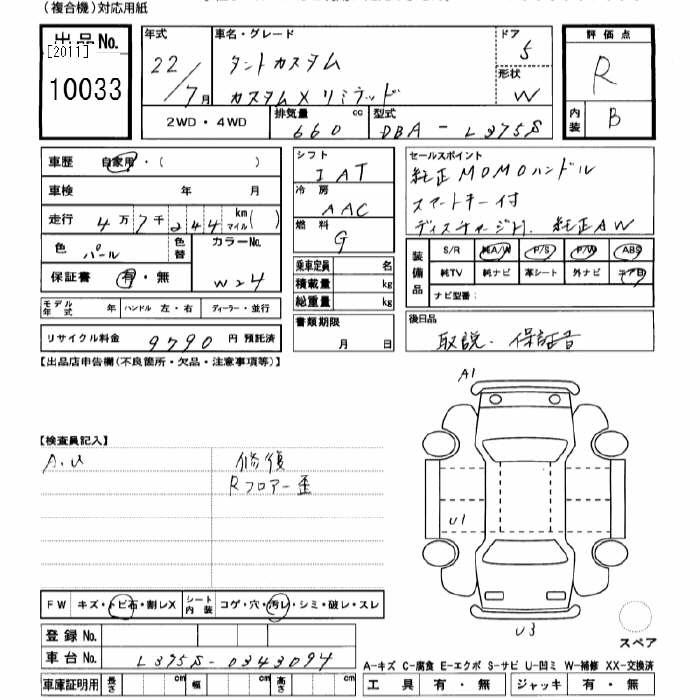 (複合機)対応用紙
出品No. [2011] 10033
年式 22/7月
車名・グレード タントカスタム カスタムXリミテッド
ドア 5
形状 W
評価点 R
内装 B
2WD・4WD
排気量 660 cc
型式 DBA-L375S
車歴 自家用・( )
車検 年 月
走行 4万7千244 km マイル( )
色 パール
色替
カラーNo. W24
保証書 有・無
モデル年式 年 ハンドル 左・右 ディーラー・並行
リサイクル料金 9790 円 預託済
シフト IAT
冷房 AAC
燃料 G
乗車定員 名
積載量 kg
総重量 kg
書類期限 月 日
セールスポイント
純正MOMOハンドル
スマートキー付
ディスチャージH. 純正AW
装備品 S/R 純A/W P/S P/W ABS
純TV 純ナビ 革シート 外ナビ エアB
ナビ型番:
後日品
取説・保証書
【出品店申告欄(不良箇所・欠品・注意事項等)】
A1
【検査員記入】
A.U 修復
Rフロアー歪
U1
U3
FW キズ・トビ石・割レX シート内装 コゲ・穴・汚レ・シミ・破レ・スレ
スペア
登録No.
車台No. L375S-0343094
A-キズ C-腐食 E-エクボ S-サビ U-凹ミ W-補修 XX-交換済
車庫証明用 長さ cm 幅 cm 高さ cm
工具 有・無 ジャッキ 有・無